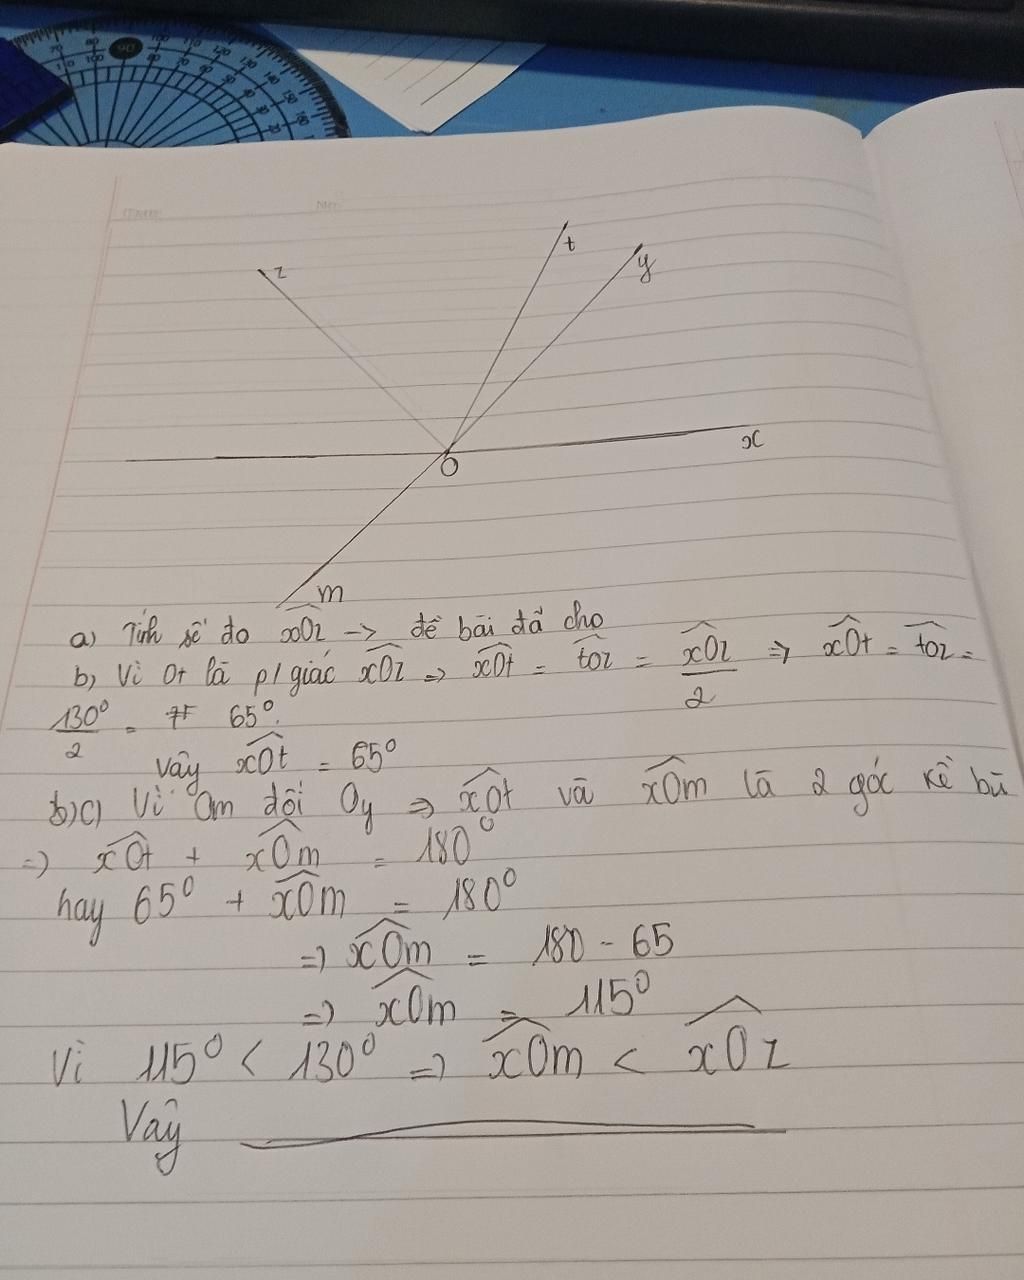 90
z
t
y
x
O
m
a) Tính số đo xOz -> đề bài đã cho
b) Vì Ot là p/giác xOz => xOt = tOz = xOz/2 => xOt = tOz =
130°/2 = 65°.
Vậy xOt = 65°
c) Vì Om đối Oy => xOt và xOm là 2 góc kề bù
=> xOt + xOm = 180°
hay 65° + xOm = 180°
=> xOm = 180 - 65
=> xOm = 115°
Vì 115° < 130° => xOm < xOz
Vậy